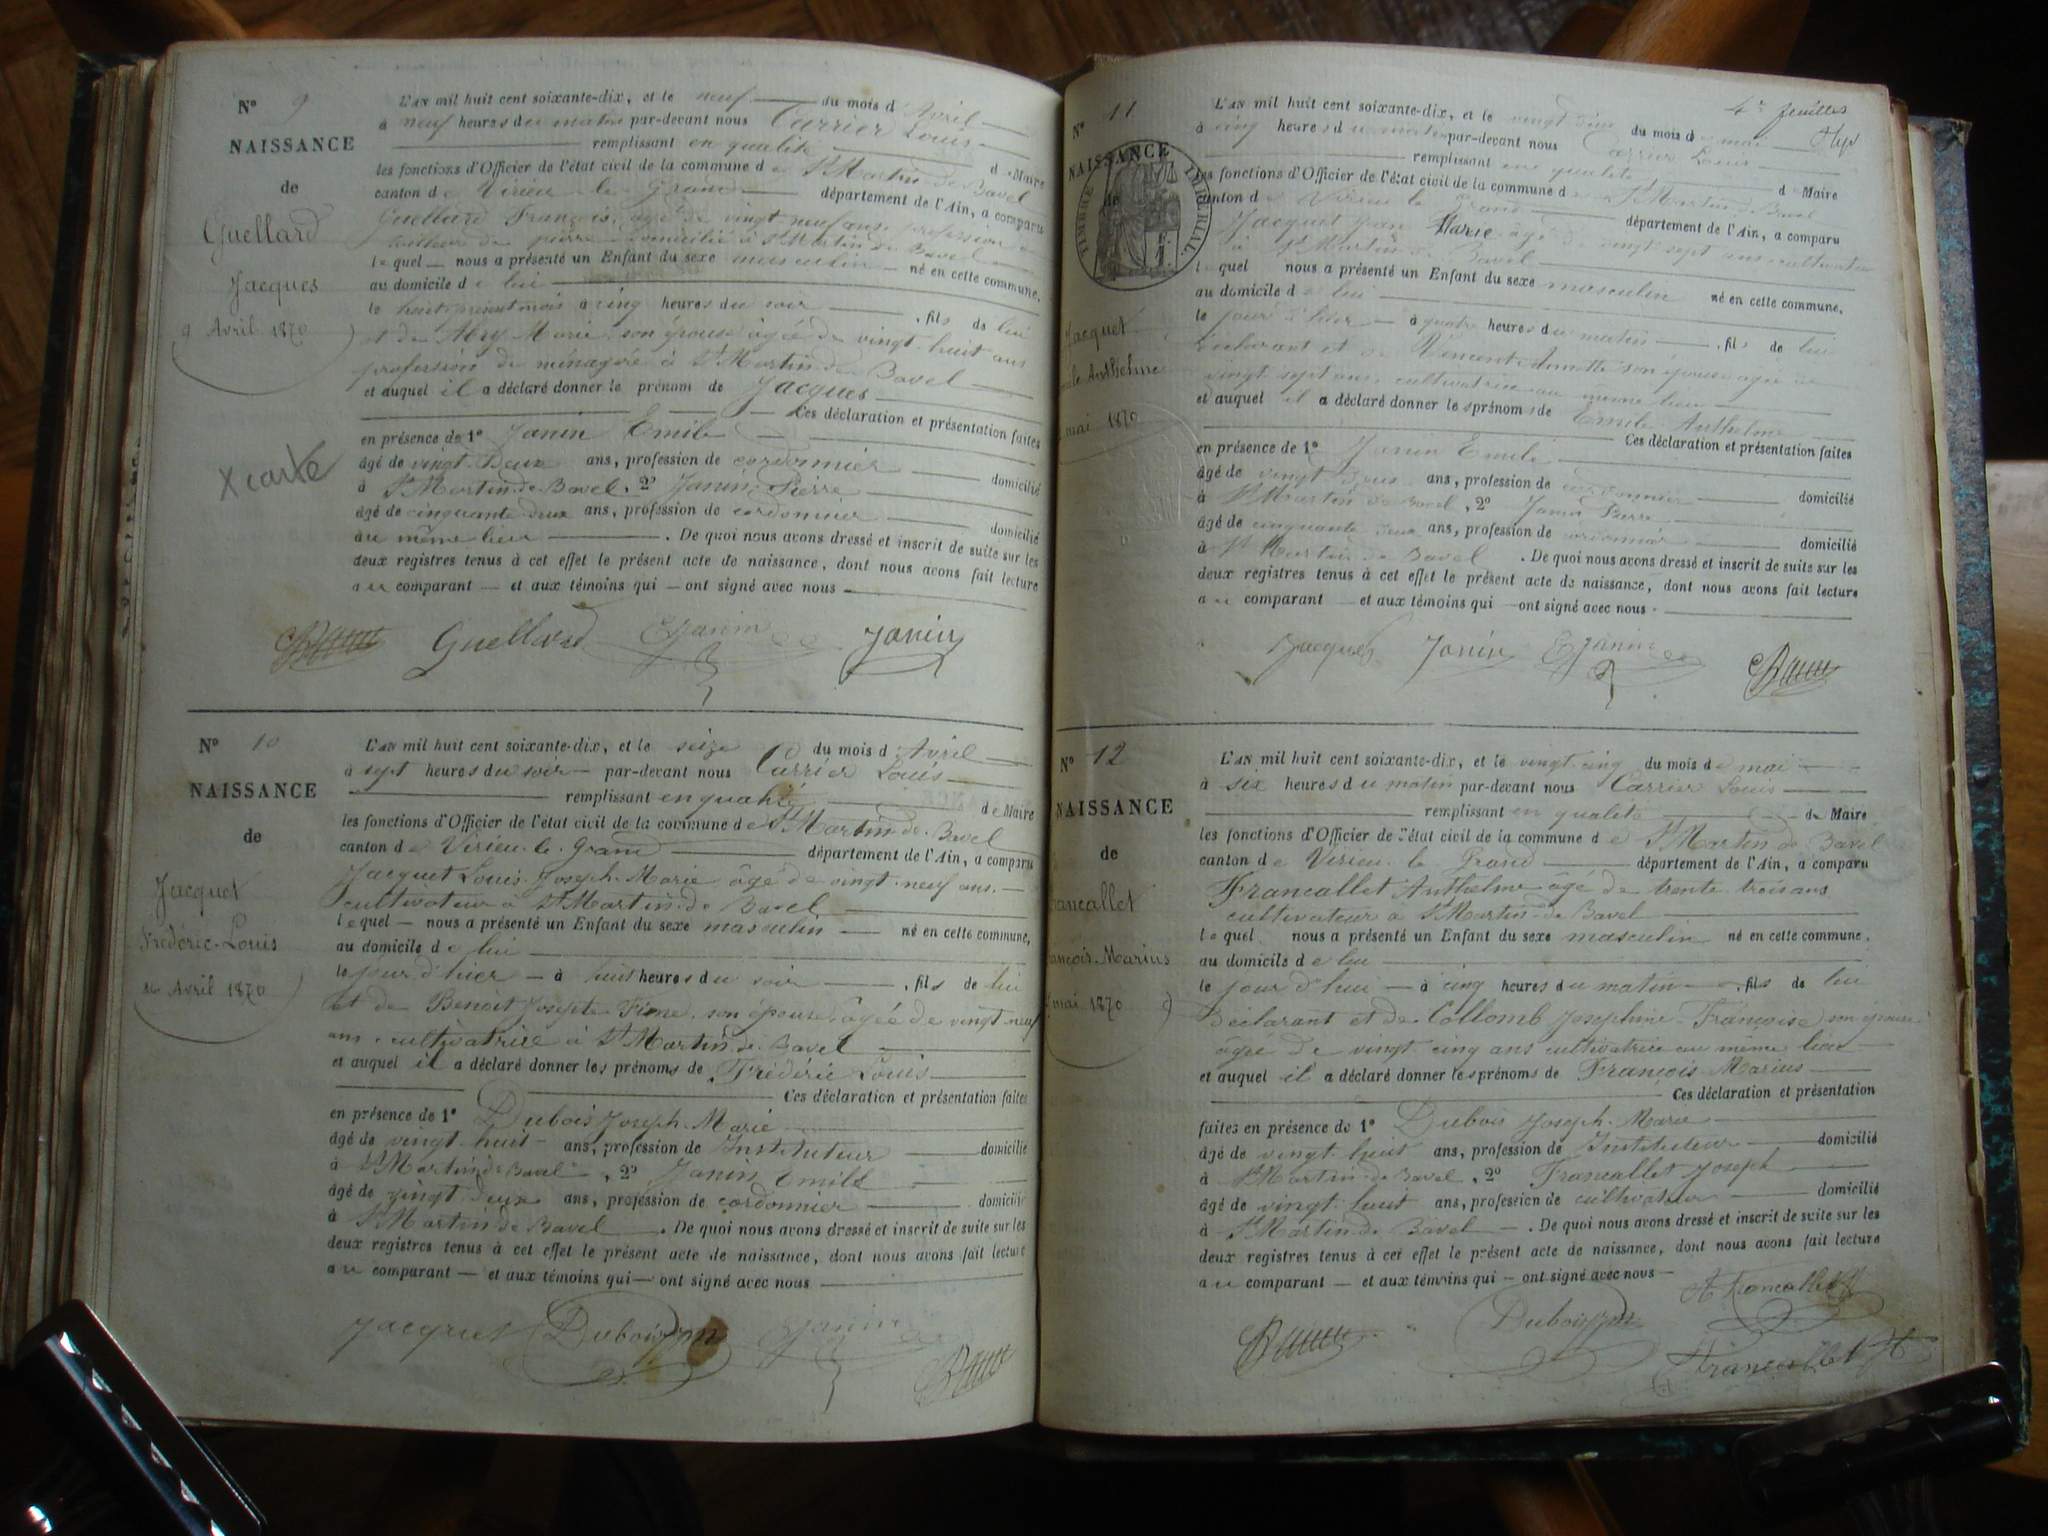 N° 9
NAISSANCE
de
Guellard
Jacques
9 Avril 1870
X carte
L'AN mil huit cent soixante-dix, et le neuf du mois d'Avril
à neuf heures du matin par-devant nous Carrier Louis
remplissant en qualité de Maire
les fonctions d'Officier de l'état civil de la commune de St Martin de Bavel
canton de Virieu-le-Grand département de l'Ain, a comparu
Guellard François, âgé de vingt neuf ans, profession de
tailleur de pierre domicilié à St Martin de Bavel
lequel nous a présenté un Enfant du sexe masculin né en cette commune,
au domicile de lui
le huit présent mois à cinq heures du soir, fils de lui
et de Abry Marie, son épouse âgée de vingt-huit ans
profession de ménagère à St Martin de Bavel
et auquel il a déclaré donner le prénom de Jacques
Ces déclaration et présentation faites
en présence de 1° Janin Emile
âgé de vingt-deux ans, profession de cordonnier domicilié
à St Martin-de-Bavel, 2° Janin Pierre
âgé de cinquante-deux ans, profession de cordonnier domicilié
au même lieu. De quoi nous avons dressé et inscrit de suite sur les
deux registres tenus à cet effet le présent acte de naissance, dont nous avons fait lecture
au comparant et aux témoins qui ont signé avec nous
Guellard EJanin Janin
N° 10
NAISSANCE
de
Jacquet
Frédéric-Louis
16 Avril 1870
L'AN mil huit cent soixante-dix, et le seize du mois d'Avril
à sept heures du soir par-devant nous Carrier Louis
remplissant en qualité de Maire
les fonctions d'Officier de l'état civil de la commune de St Martin-de-Bavel
canton de Virieu-le-Grand département de l'Ain, a comparu
Jacquet Louis-Joseph-Marie âgé de vingt-neuf ans,
cultivateur à St Martin-de Bavel
lequel nous a présenté un Enfant du sexe masculin né en cette commune,
au domicile de lui
le jour d'hier à huit heures du soir, fils de lui
et de Benoit Josepte Fine, son épouse, âgée de vingt-neuf
ans, cultivatrice à St Martin-de-Bavel
et auquel il a déclaré donner les prénoms de Frédéric Louis
Ces déclaration et présentation faites
en présence de 1° Dubois Joseph-Marie
âgé de vingt-huit ans, profession de Instituteur domicilié
à St Martin-de-Bavel, 2° Janin Emile
âgé de vingt-deux ans, profession de cordonnier domicilié
à St Martin-de Bavel. De quoi nous avons dressé et inscrit de suite sur les
deux registres tenus à cet effet le présent acte de naissance, dont nous avons fait lecture
au comparant et aux témoins qui ont signé avec nous
Jacquet Dubois EJanin
4e feuilles
N° 11
NAISSANCE
de
TIMBRE IMPÉRIAL
Jacquet
Anthelme
mai 1870
L'AN mil huit cent soixante-dix, et le vingt deux du mois de mai
à cinq heures du matin par-devant nous Carrier Louis
remplissant en qualité de Maire
les fonctions d'Officier de l'état civil de la commune de St Martin-de-Bavel
canton de Virieu le Grand département de l'Ain, a comparu
Jacquet Jean Marie âgé de vingt sept ans cultivateur
à St Martin de Bavel
lequel nous a présenté un Enfant du sexe masculin né en cette commune,
au domicile de lui
le jour d'hier à quatre heures du matin, fils de lui
déclarant et de son épouse âgée de
vingt sept ans, cultivatrice au même lieu
et auquel il a déclaré donner les prénoms de Emile Anthelme
Ces déclaration et présentation faites
en présence de 1° Janin Emile
âgé de vingt deux ans, profession de cordonnier domicilié
à St Martin de Bavel, 2° Janin Pierre
âgé de cinquante deux ans, profession de cordonnier domicilié
à St Martin de Bavel. De quoi nous avons dressé et inscrit de suite sur les
deux registres tenus à cet effet le présent acte de naissance, dont nous avons fait lecture
au comparant et aux témoins qui ont signé avec nous
Jacquet Janin EJanin
N° 12
NAISSANCE
de
ancallet
ançois-Marius
mai 1870
L'AN mil huit cent soixante-dix, et le vingt-cinq du mois de mai
à six heures du matin par-devant nous Carrier Louis
remplissant en qualité de Maire
les fonctions d'Officier de l'état civil de la commune de St Martin de Bavel
canton de Virieu-le Grand département de l'Ain, a comparu
Francallet Anthelme âgé de trente-trois ans
cultivateur à St Martin-de Bavel
lequel nous a présenté un Enfant du sexe masculin né en cette commune,
au domicile de lui
le jour d'hui à cinq heures du matin, fils de lui
déclarant et de Collomb Joséphine-Françoise son épouse
âgée de vingt-cinq ans cultivatrice au même lieu
et auquel il a déclaré donner les prénoms de François-Marius
Ces déclaration et présentation
faites en présence de 1° Dubois Joseph-Marie
âgé de vingt-huit ans, profession de Instituteur domicilié
à St Martin-de Bavel, 2° Francallet Joseph
âgé de vingt-huit ans, profession de cultivateur domicilié
à St Martin-de Bavel. De quoi nous avons dressé et inscrit de suite sur les
deux registres tenus à cet effet le présent acte de naissance, dont nous avons fait lecture
au comparant et aux témoins qui ont signé avec nous
A Francallet
Dubois
Francallet